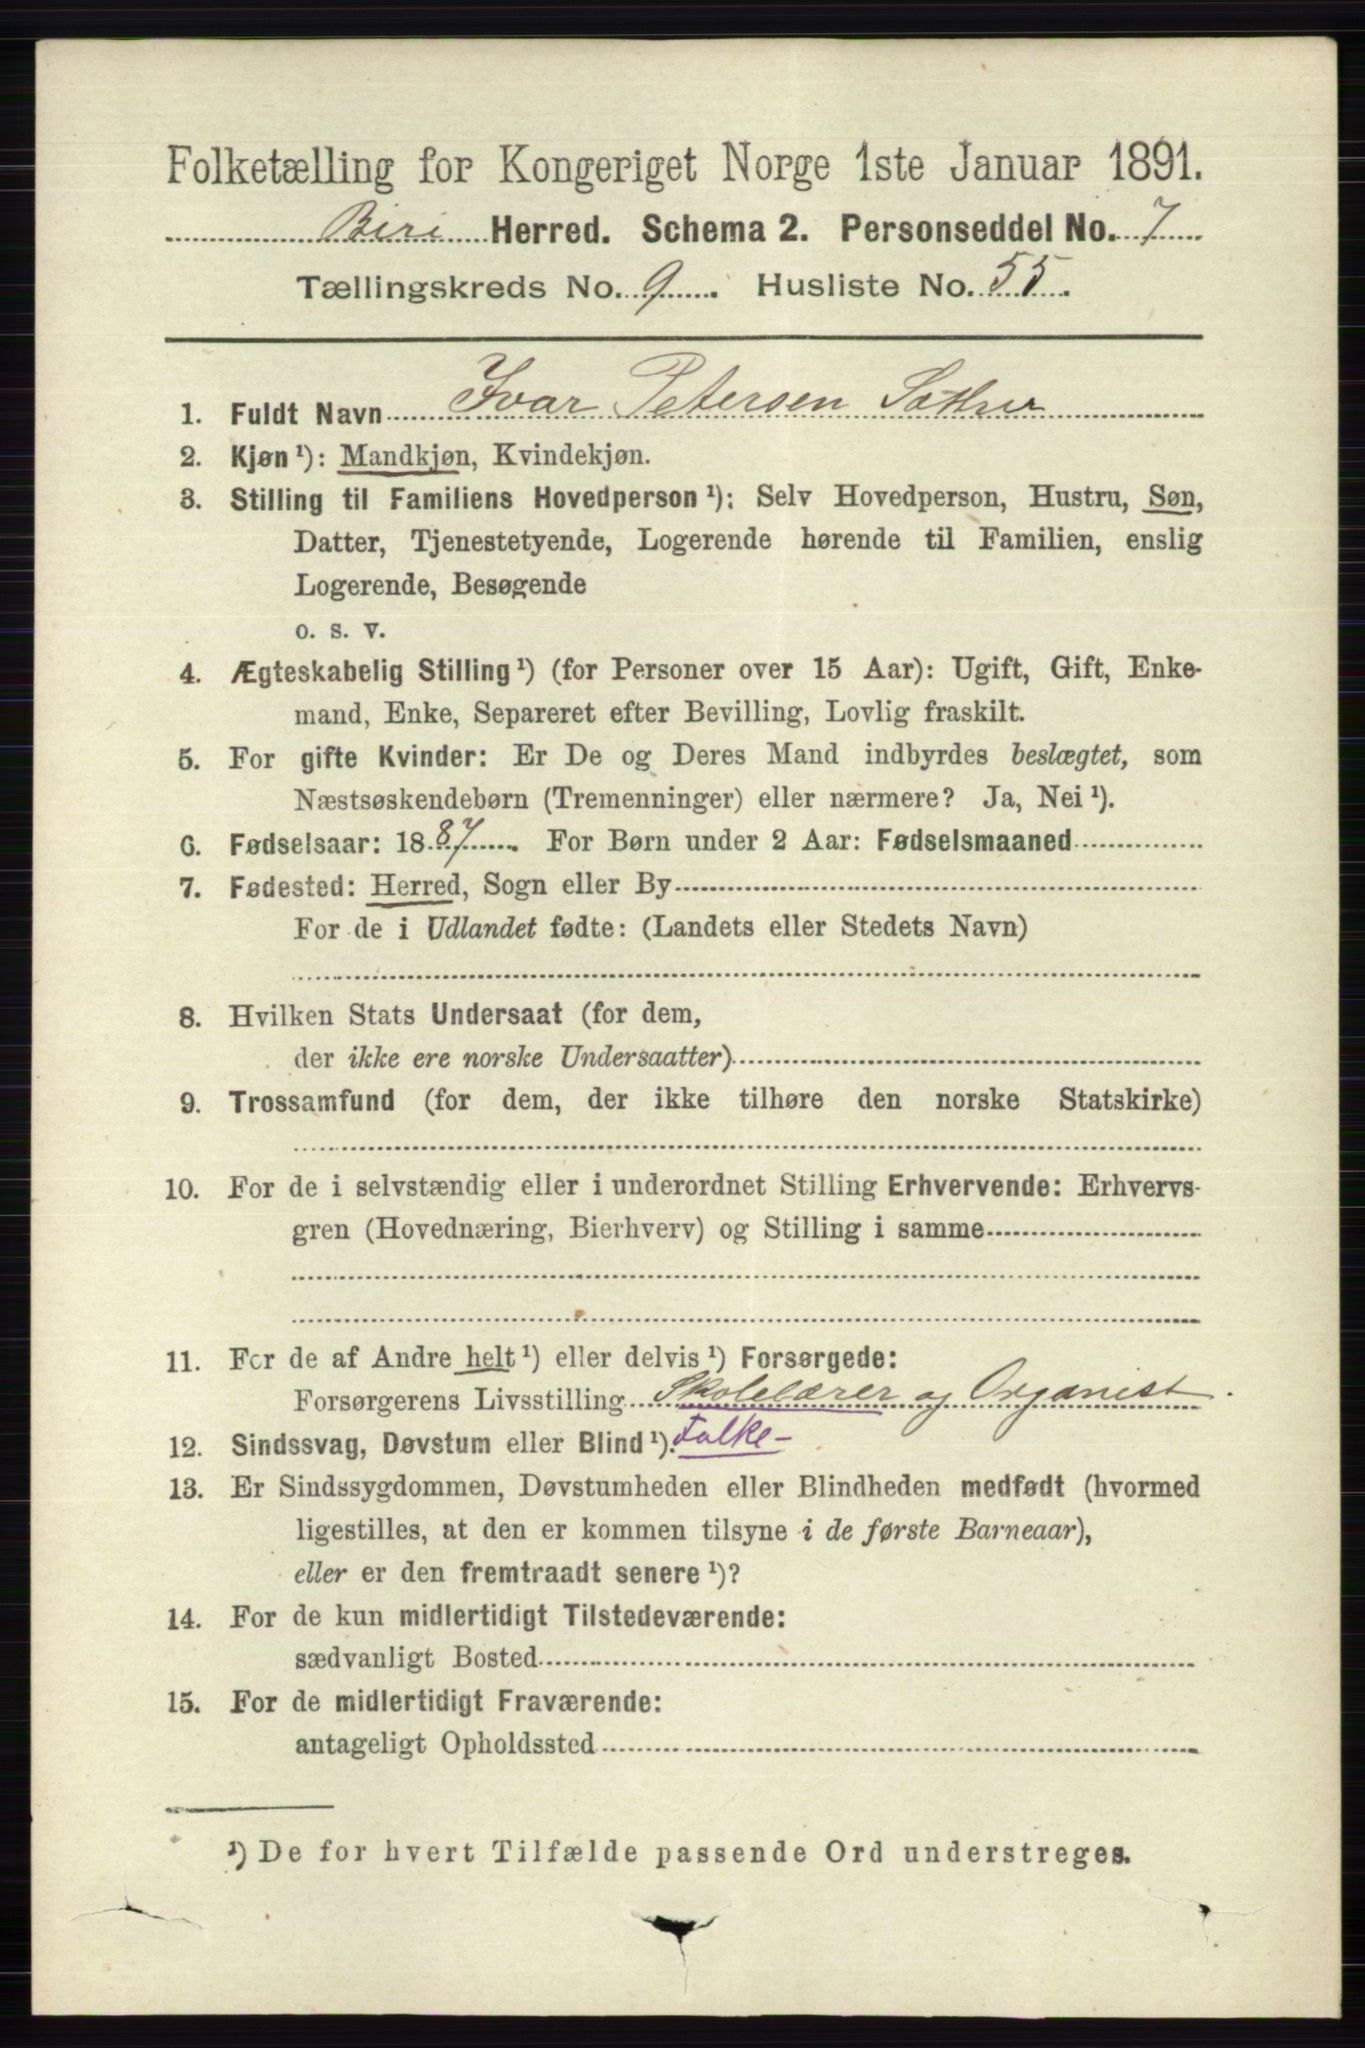 Folketælling for Kongeriget Norge 1ste Januar 1891.
Biri Herred. Schema 2. Personseddel No. 7
Tællingskreds No. 9. Husliste No. 55.
1. Fuldt Navn Ivar Petersen
2. Kjøn ¹): Mandkjøn, Kvindekjøn.
3. Stilling til Familiens Hovedperson ¹): Selv Hovedperson, Hustru, Søn,
Datter, Tjenestetyende, Logerende hørende til Familien, enslig
Logerende, Besøgende
o. s. v.
4. Ægteskabelig Stilling ¹) (for Personer over 15 Aar): Ugift, Gift, Enke-
mand, Enke, Separeret efter Bevilling, Lovlig fraskilt.
5. For gifte Kvinder: Er De og Deres Mand indbyrdes beslægtet, som
Næstsøskendebørn (Tremenninger) eller nærmere? Ja, Nei ¹).
6. Fødselsaar: 1887. For Børn under 2 Aar: Fødselsmaaned
7. Fødested: Herred, Sogn eller By
For de i Udlandet fødte: (Landets eller Stedets Navn)
8. Hvilken Stats Undersaat (for dem,
der ikke ere norske Undersaatter)
9. Trossamfund (for dem, der ikke tilhøre den norske Statskirke)
10. For de i selvstændig eller i underordnet Stilling Erhvervende: Erhvervs-
gren (Hovednæring, Bierhverv) og Stilling i samme
11. For de af Andre helt ¹) eller delvis ¹) Forsørgede:
Forsørgerens Livsstilling Skolelærer og Organist.
12. Sindssvag, Døvstum eller Blind ¹). Folke-
13. Er Sindssygdommen, Døvstumheden eller Blindheden medfødt (hvormed
ligestilles, at den er kommen tilsyne i de første Barneaar),
eller er den fremtraadt senere ¹)?
14. For de kun midlertidigt Tilstedeværende:
sædvanligt Bosted
15. For de midlertidigt Fraværende:
antageligt Opholdssted
¹) De for hvert Tilfælde passende Ord understreges.